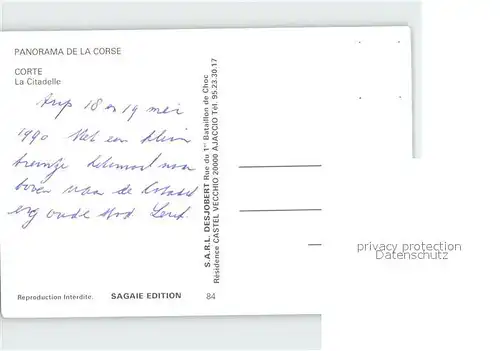 PANORAMA DE LA CORSE
CORTE
La Citadelle
18 en 19 mei
1990 Met een klein
treintje helemaal naar
boven naar de
erg oude stad. Leuk.
Reproduction Interdite.
SAGAIE EDITION
84
S.A.R.L. DESJOBERT Rue du 1er Bataillon de Choc
Résidence CASTEL VECCHIO 20000 AJACCIO Tél. 95.23.30.17
privacy protection
Datenschutz